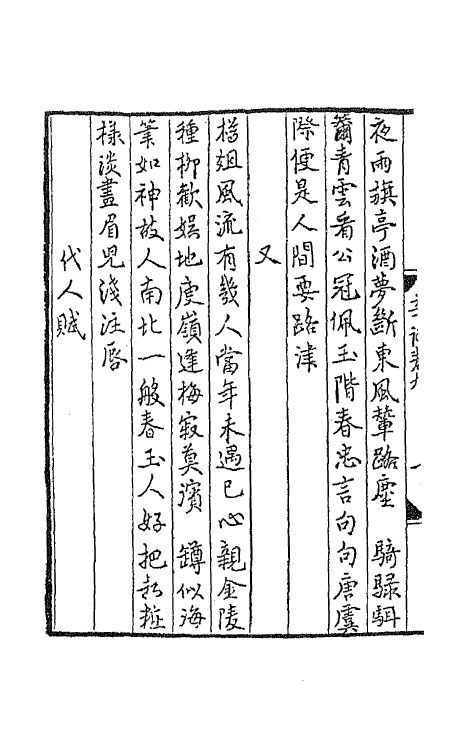 夜雨旗亭酒夢斷東風輦路塵 騎騄駬
籋青雲看公冠佩玉階春忠言句句唐虞
際便是人間要路津
又
樽俎風流有幾人當年未遇已心親金陵
種柳歡娛地庾嶺逢梅寂寞濱 罇似海
筆如神故人南北一般春玉人好把新粧
様淡畫眉兒淺注唇
代人賦